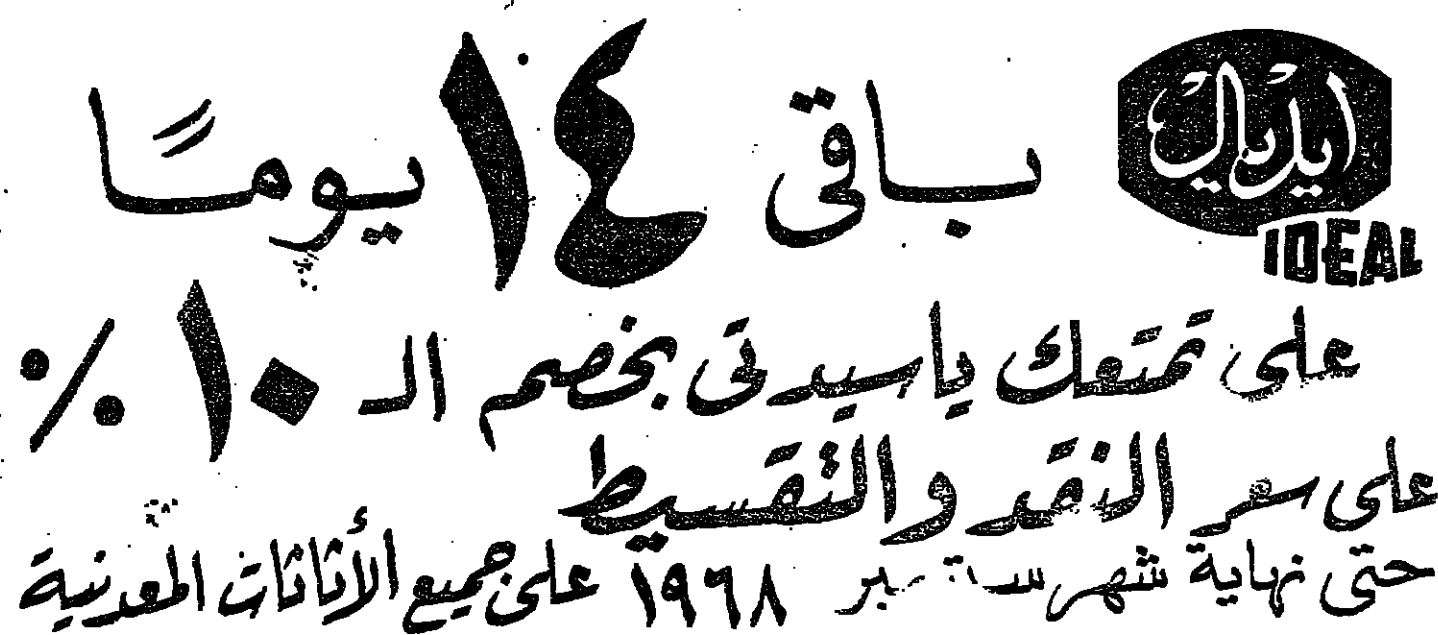 ايديال
IDEAL
باقى ١٤ يومًا
على تمتعك ياسيدتى بخصم الـ ١٠ ٪
على سعر النقد والتقسيط
حتى نهاية شهر سبتمبر ١٩٦٨ على جميع الأثاثات المعدنية